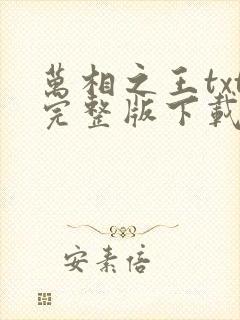 萬相之王txt
完整版下載
安素倍